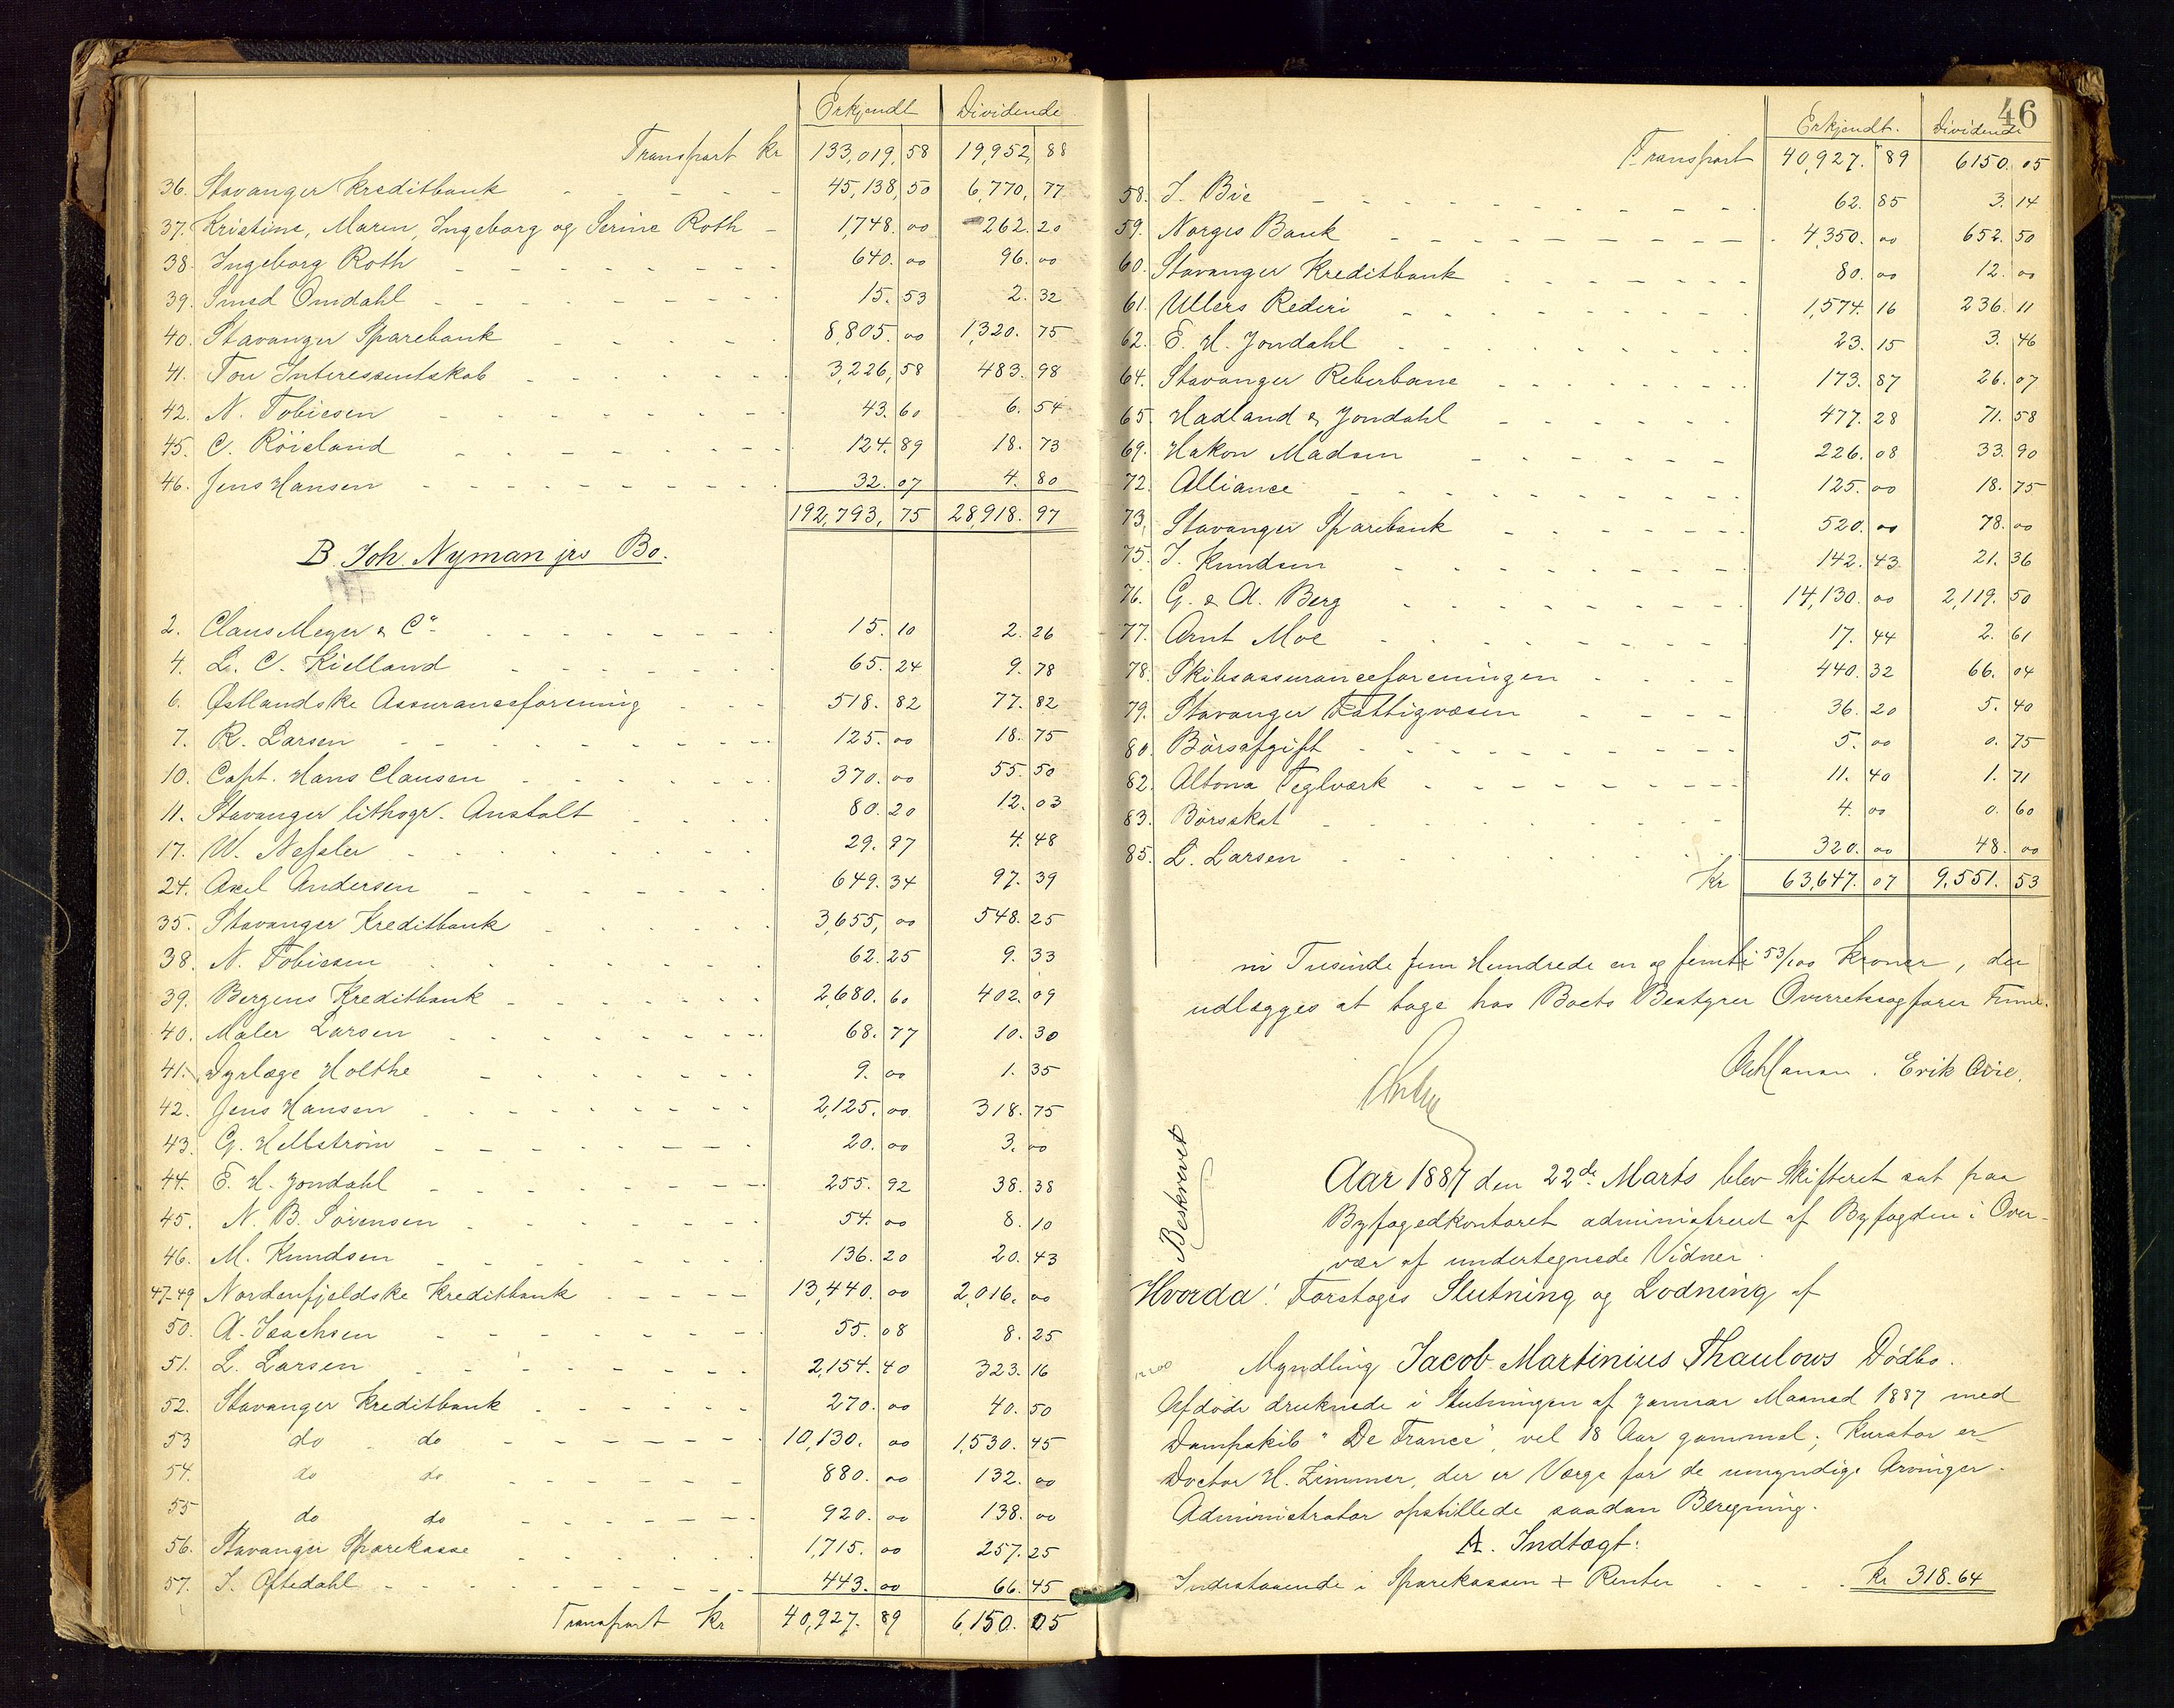 Erkjendt Dividende
Transport Kr 133,019,58 19,952,88
36. Stavanger Kreditbank 45,138,50 6,770,77
37. Kristine, Maren, Ingeborg og Serine Roth 1,748.00 262.20
38. Ingeborg Roth 640.00 96.00
39. Smed Omdahl 15.53 2.32
40. Stavanger Sparebank 8,805.00 1,320.75
41. Tou Interessentskab 3,226,58 483.98
42. N. Tobiesen 43.60 6.54
45. C. Röieland 124.89 18.73
46. Jens Hansen 32.07 4.80
192,793,75 28,918.97
B. Joh. Nyman jrs Bo.
2. Claus Meyer & Co 15.10 2.26
4. L. C. Kielland 65.24 9.78
6. Østlandske Assuranceforening 518.82 77.82
7. R. Larsen 125.00 18.75
10. Capt. Hans Clausen 370.00 55.50
11. Stavanger lithogr. Anstalt 80.20 12.03
17. W. Nessler 29.97 4.48
24. Axel Andersen 649.34 97.39
35. Stavanger Kreditbank 3,655,00 548.25
38. N. Tobiesen 62.25 9.33
39. Bergens Kreditbank 2,680.60 402.09
40. Maler Larsen 68.77 10.30
41. Dyrlæge Holthe 9.00 1.35
42. Jens Hansen 2,125.00 318.75
43. G. Hellström 20.00 3.00
44. E. H. Jondahl 255.92 38.38
45. N. B. Sörensen 54.00 8.10
46. M. Knudsen 136.20 20.43
47-49 Nordenfjeldske Kreditbank 13,440.00 2,016.00
50. A. Isachsen 55.08 8.25
51. L. Larsen 2,154.40 323.16
52. Stavanger Kreditbank 270.00 40.50
53 do do 10,130.00 1,530.45
54. do do 880.00 132.00
55 do do 920.00 138.00
56. Stavanger Sparekasse 1,715.00 257.25
57. J. Oftedahl 443.00 66.45
Transport Kr 40,927.89 6,150.05
46
Erkjendt. Dividende
Transport 40,927.89 6150.05
58. J. Bie 62.85 3.14
59. Norges Bank 4,350.00 652.50
60. Stavanger Kreditbank 80.00 12.00
61. Ullers Rederi 1,574.16 236.11
62. E. H. Jondahl 23.15 3.46
64. Stavanger Reberbane 173.87 26.07
65. Hadland & Jondahl 477.28 71.58
69. Hakon Madsen 226.08 33.90
72. Alliance 125.00 18.75
73. Stavanger Sparebank 520.00 78.00
75. J. Knudsen 142.43 21.36
76. G. & A. Berg 14,130.00 2,119.50
77. Arnt Moe 17.44 2.61
78. Skibsassuranceforeningen 440.32 66.04
79. Stavanger Fattigvæsen 36.20 5.40
80. Börsafgift 5.00 0.75
82. Altona Teglværk 11.40 1.71
83. Börsskat 4.00 0.60
85. L. Larsen 320.00 48.00
Kr 63,647.07 9,551.53
ni Tusinde fem Hundrede en og femti 53/100 Kroner, der
udlægges at tage hos Boets Bestyrer Overretssagfører
Erik Øvie.
Beskrevet
Aar 1887 den 22de Marts blev Skifteret sat paa
Byfogedkontoret administreret af Byfogden i Over-
vær af undertegnede Vidner.
Hvorda! Foretoges Slutning og Lodning af
Myndling Jacob Martinius Thaulows Dødbo.
Afdøde druknede i Slutningen af Januar Maaned 1887 med
Dampskib "De France", vel 18 Aar gammel; Kurator er
Doctor H. Zimmer, der er Værge for de umyndige Arvinger.
Administrator opstillede saadan Beregning.
A. Indtægt:
Indestaaende i Sparekassen + Renter Kr 318.64